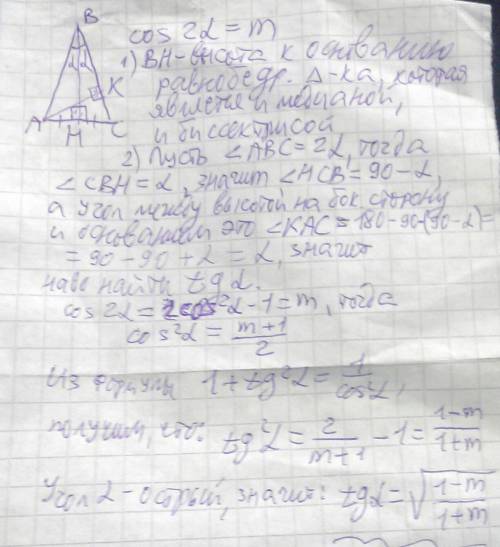 B
cos 2α = m
1) BH - высота к основанию
равнобедр. Δ-ка, которая
является и медианой,
и биссектрисой
α α
K
A H C
2) Пусть ∠ABC = 2α, тогда
∠CBH = α, значит ∠HCB = 90 - α,
а угол между высотой на бок. сторону
и основанием это ∠KAC = 180 - 90 - (90 - α) =
= 90 - 90 + α = α, значит
надо найти tg α.
cos 2α = 2cos²α - 1 = m, тогда
cos²α = (m+1)/2
Из формулы 1 + tg²α = 1/cos²α,
получим, что: tg²α = 2/(m+1) - 1 = (1-m)/(1+m)
Угол α - острый, значит: tg α = √((1-m)/(1+m))